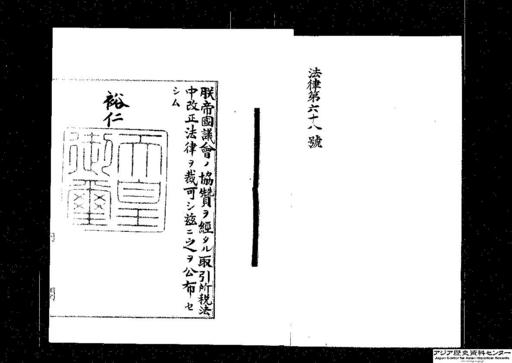 法律第六十八號
朕帝國議會ノ協贊ヲ經タル取引所税法
中改正法律ヲ裁可シ茲ニ之ヲ公布セ
シム
裕仁
天皇
御璽
アジア歴史資料センター
Japan Center for Asian Historical Records